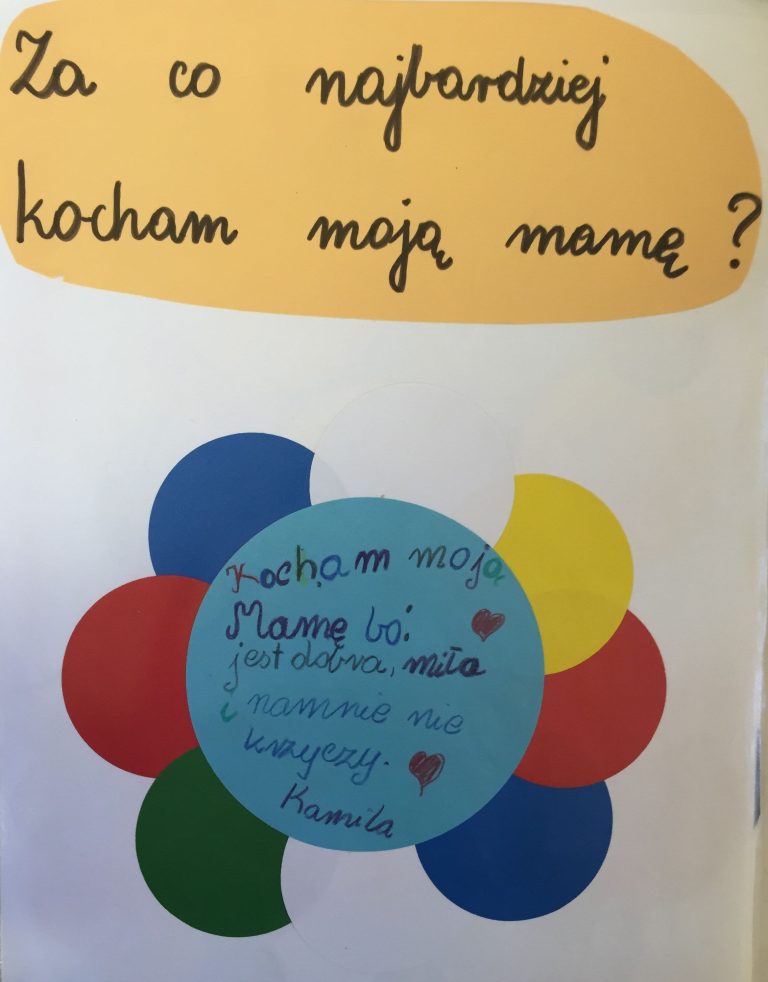 Za co najbardziej
kocham moją mamę ?
Kocham moją
Mamę bo:
jest dobra, miła
i namnie nie
krzyczy.
Kamila